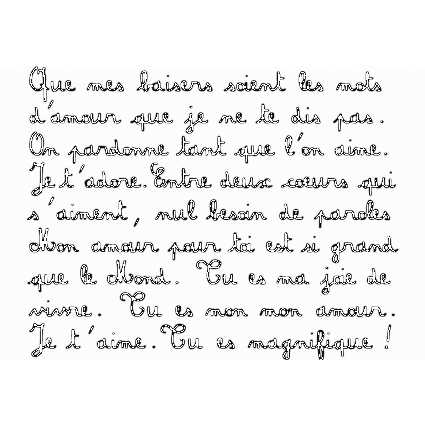 Que mes baisers soient les mots
d'amour que je ne te dis pas.
On pardonne tant que l'on aime.
Je t'adore. Entre deux cœurs qui
s'aiment, nul besoin de paroles
Mon amour pour toi est si grand
que le Mond. Tu es ma joie de
vivre. Tu es mon mon amour.
Je t'aime. Tu es magnifique !